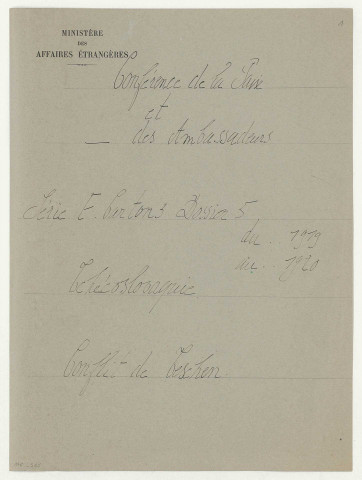 MINISTÈRE
DES
AFFAIRES ÉTRANGÈRES
Conférence de la Paix
et
des Ambassadeurs
Série E. Cartons Dossier 5
du 1919
au 1920
Tchécoslovaquie
Conflit de Teschen